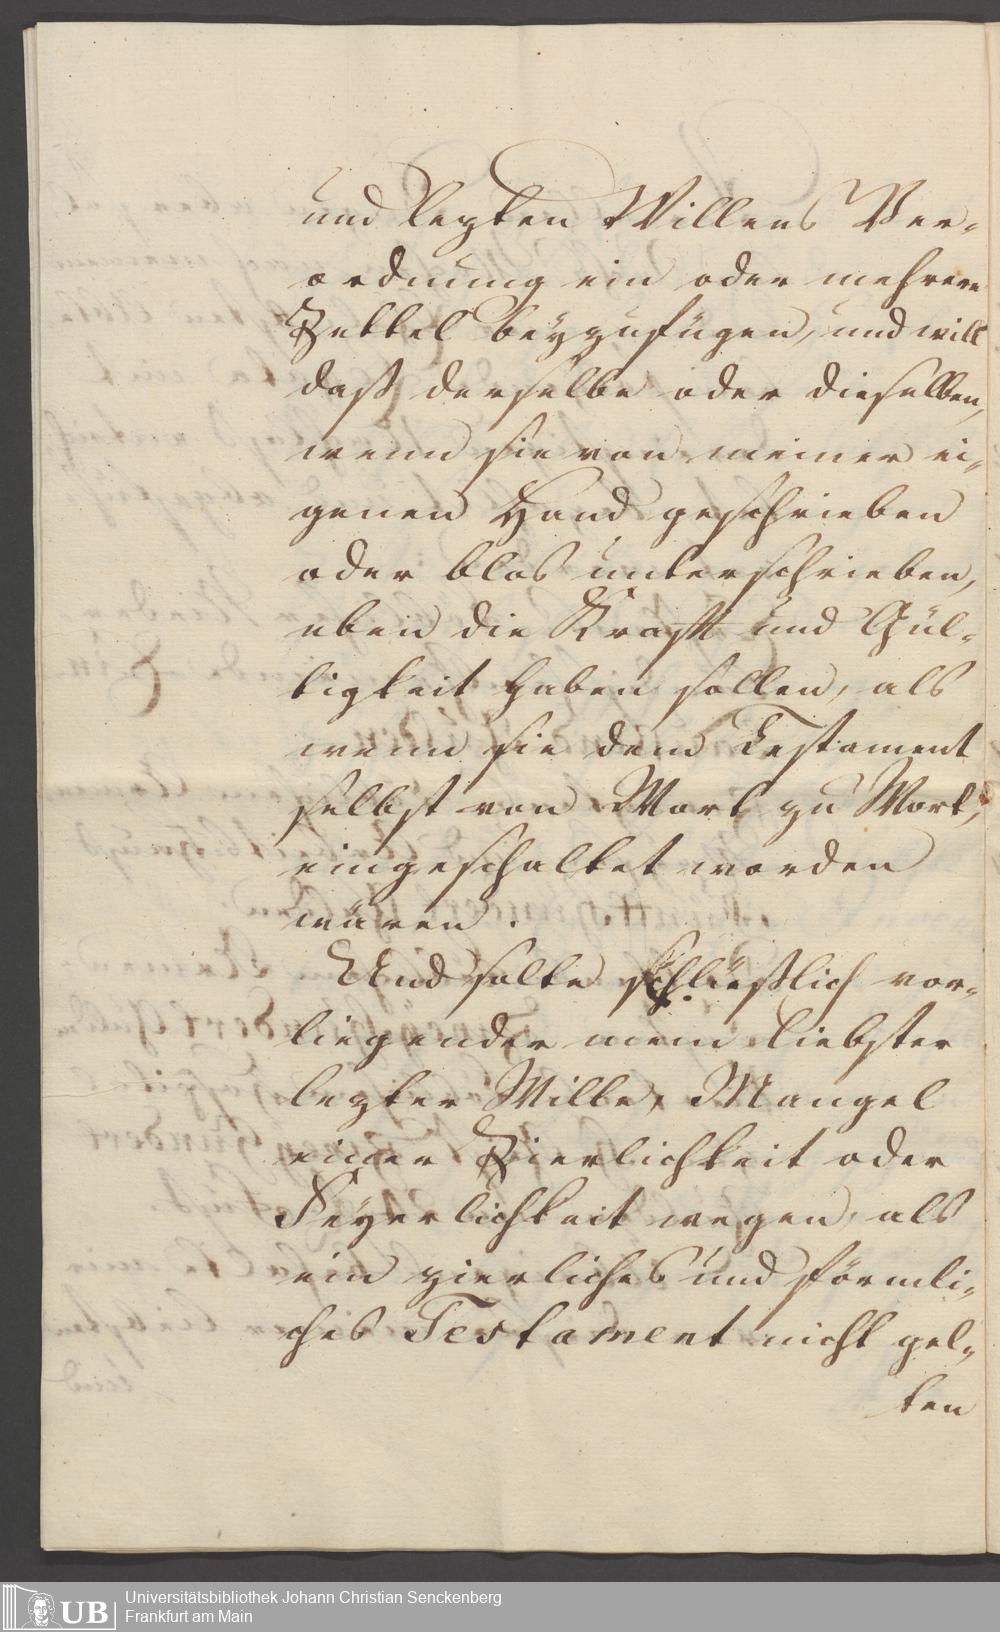 und lezten Willens Ver-
ordnung ein oder mehrere
Zettel beyzufügen, und will
daß derselbe oder dieselben,
wenn sie von meiner ei-
genen Hand geschrieben
oder blos unterschrieben,
eben die Kraft und Gül-
tigkeit haben sollen, als
wenn sie dem Testament
selbst von Wort zu Wort,
eingeschaltet worden
wären.
Und solte schließlich vor-
liegender mein liebster
lezter Wille, Mangel
einer Zierlichkeit oder
Feyerlichkeit wegen, als
ein zierliches und förmli-
ches Testament nicht gel-
ten
Universitätsbibliothek Johann Christian Senckenberg
UB Frankfurt am Main